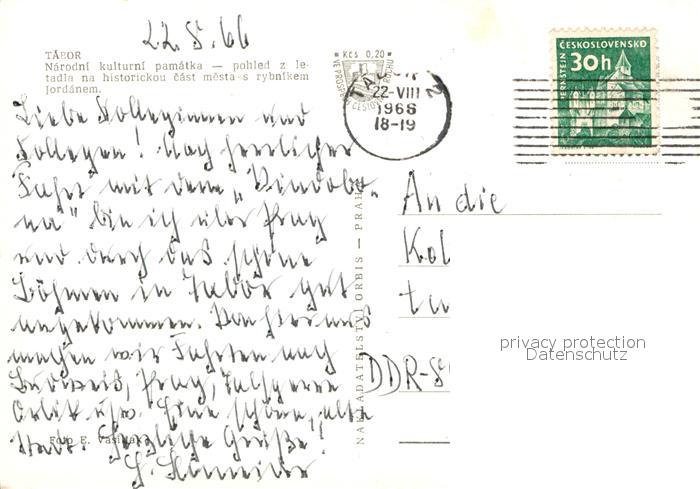 22.8.66
TÁBOR
Národní kulturní památka — pohled z le-
tadla na historickou část města s rybníkem
Jordánem.
Liebe Kolleginnen und
Kollegen! Nach herrlicher
Fahrt mit dem „Vindobo-
na" bin ich über Prag
und durch das schöne
Böhmen in Tabor gut
angekommen. Von hier aus
machen wir Fahrten nach
Budweis, Prag, Talsperre
Orlik usw. Eine schöne, alte
Stadt. Herzliche Grüße!
Foto E. Vasiliak
NAKLADATELSTVÍ ORBIS — PRAHA
Kčs 0,20
TÁBOR
22-VIII
1966
18-19
2
ČESKOSLOVENSKO
30h
PERNŠTEJN
An die
Kol
DDR-
privacy protection
Datenschutz